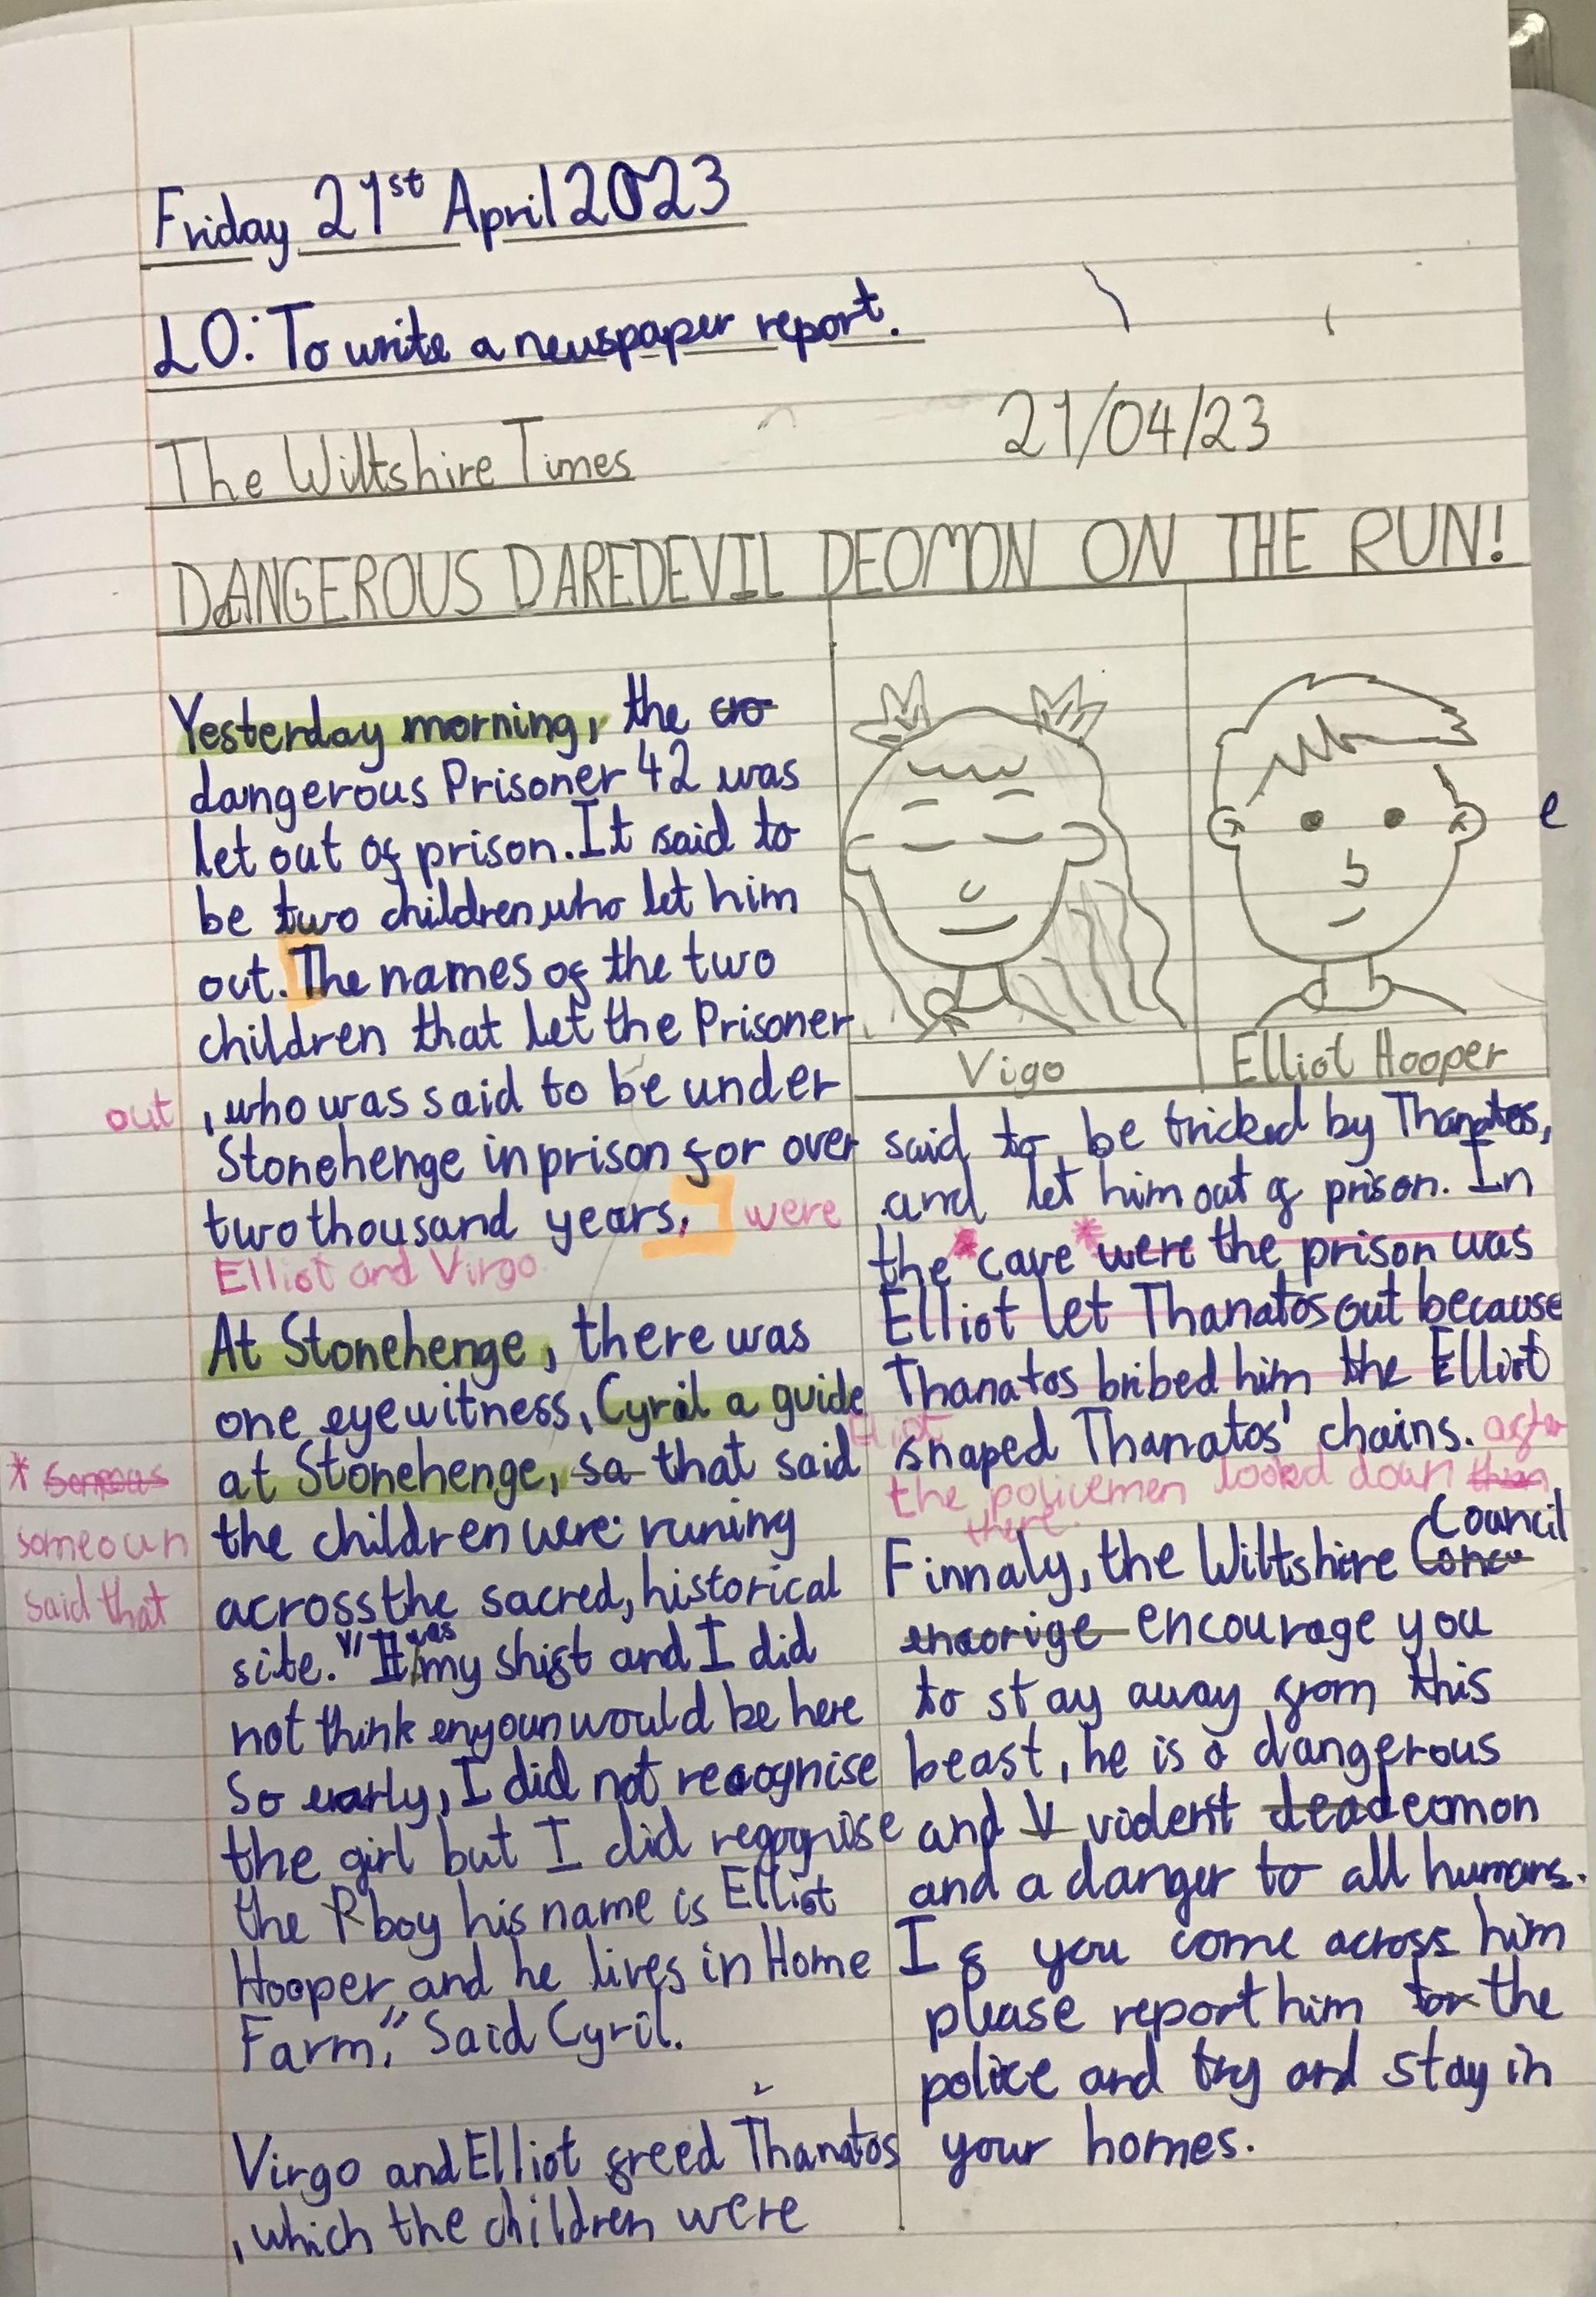 Friday 21st April 2023
LO: To write a newspaper report.
The Wiltshire Times
21/04/23
DANGEROUS DAREDEVIL DEOMON ON THE RUN!
Yesterday morning, the cro
dangerous Prisoner 42 was
let out of prison. It said to
be two children, who let him
out. The names of the two
children that let the Prisoner
out , who was said to be under
Stonehenge in prison for over
two thousand years, were
Elliot and Virgo
At Stonehenge, there was
one eyewitness, Cyril a guide
at Stonehenge, sa that said
* someoun
said that
the children were runing
across the sacred, historical
site. "It was my shift and I did
not think enyoun would be here
So early, I did not recognise
the girl but I did regognise
the boy his name is Elliot
Hooper and he lives in Home
Farm," Said Cyril.
Virgo and Elliot freed Thanatos
, which the children were
Vigo
Elliot Hooper
e
said to be tricked by Thanatos,
and let him out of prison. In
the * cave * were the prison was
Elliot let Thanatos out because
Thanatos bribed him the Elliot
Elliot
snaped Thanatos' chains. after
the policemen looked down than
there.
Council
Finnaly, the Wiltshire Conco
encorige encourage you
to stay away from this
beast, he is a dangerous
and V violent dea deomon
and a danger to all humans.
If you come across him
please report him to the
police and try and stay in
your homes.